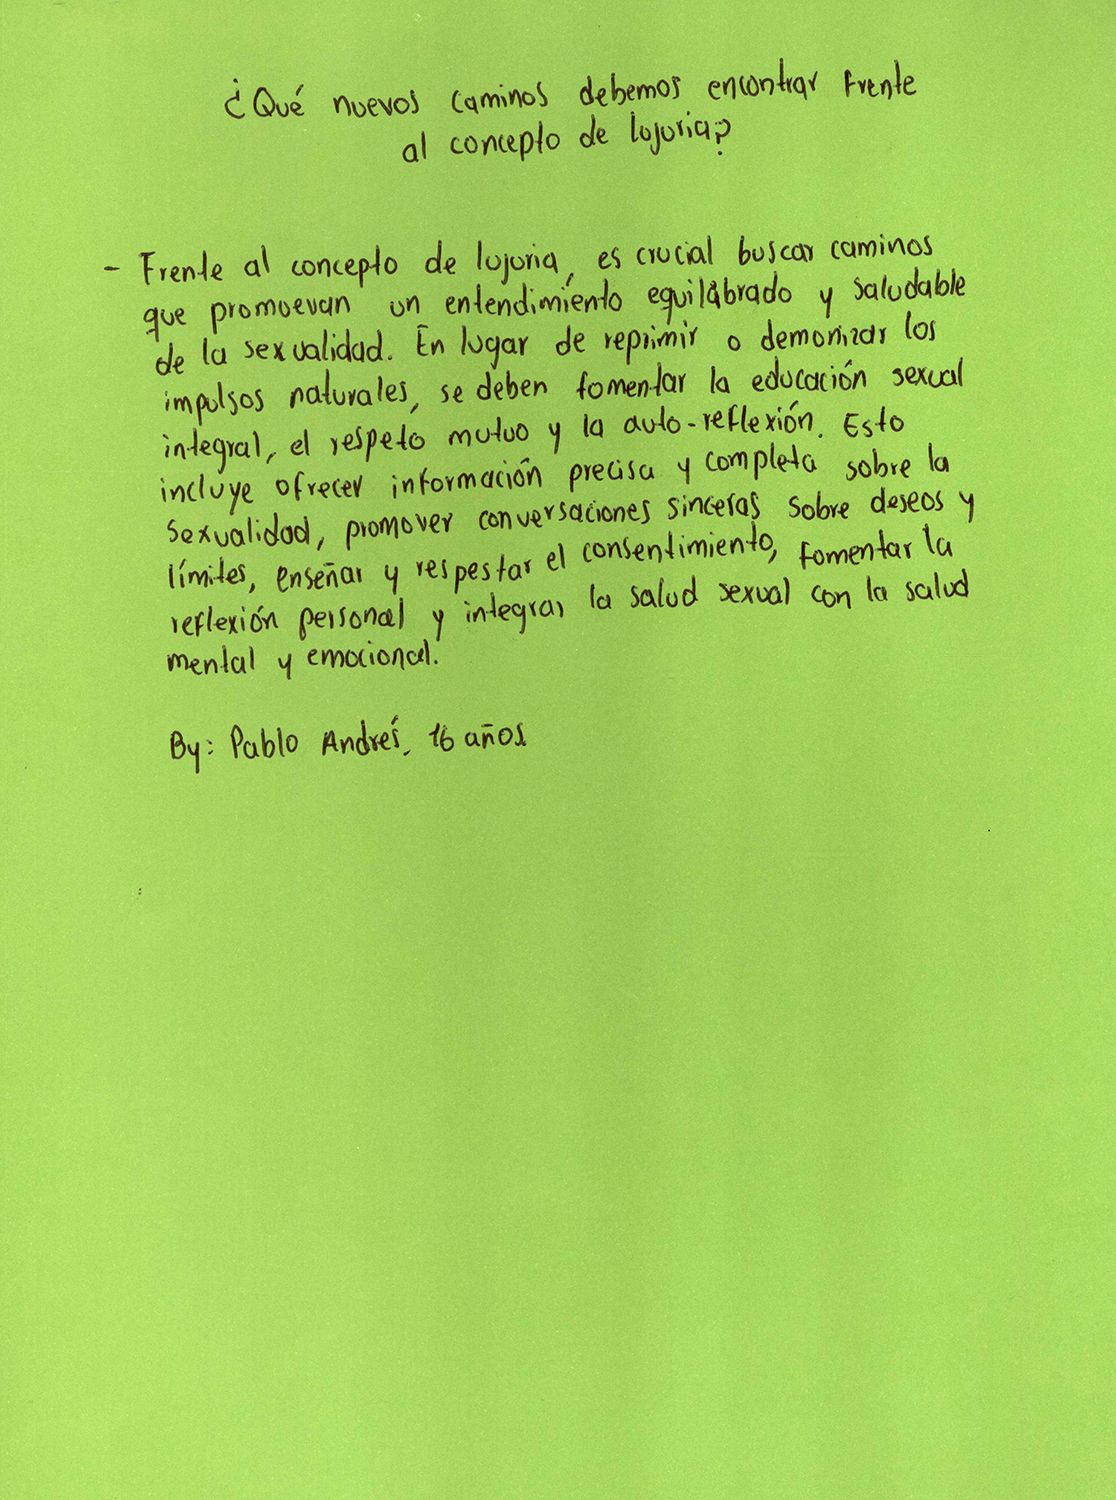 ¿Qué nuevos caminos debemos encontrar frente
al concepto de lujuria?
- Frente al concepto de lujuria, es crucial buscar caminos
que promuevan un entendimiento equilibrado y saludable
de la sexualidad. En lugar de reprimir o demonizar los
impulsos naturales, se deben fomentar la educación sexual
integral, el respeto mutuo y la auto-reflexión. Esto
incluye ofrecer información precisa y completa sobre la
sexualidad, promover conversaciones sinceras sobre deseos y
límites, enseñar y respestar el consentimiento, fomentar la
reflexión personal y integrar la salud sexual con la salud
mental y emocional.
By: Pablo Andrés, 16 años